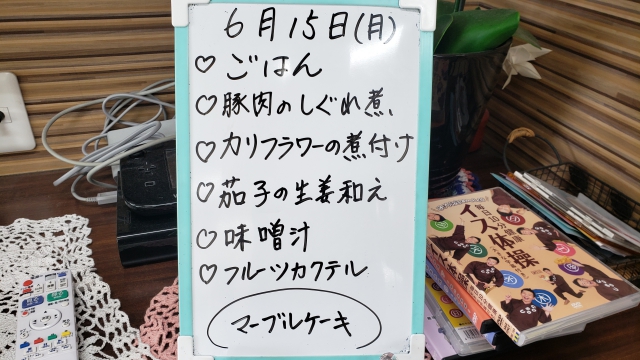 6月15日(月)
♡ごはん
♡豚肉のしぐれ煮
♡カリフラワーの煮付け
♡茄子の生姜和え
♡味噌汁
♡フルーツカクテル
マーブルケーキ
毎日10分健康
イス体操